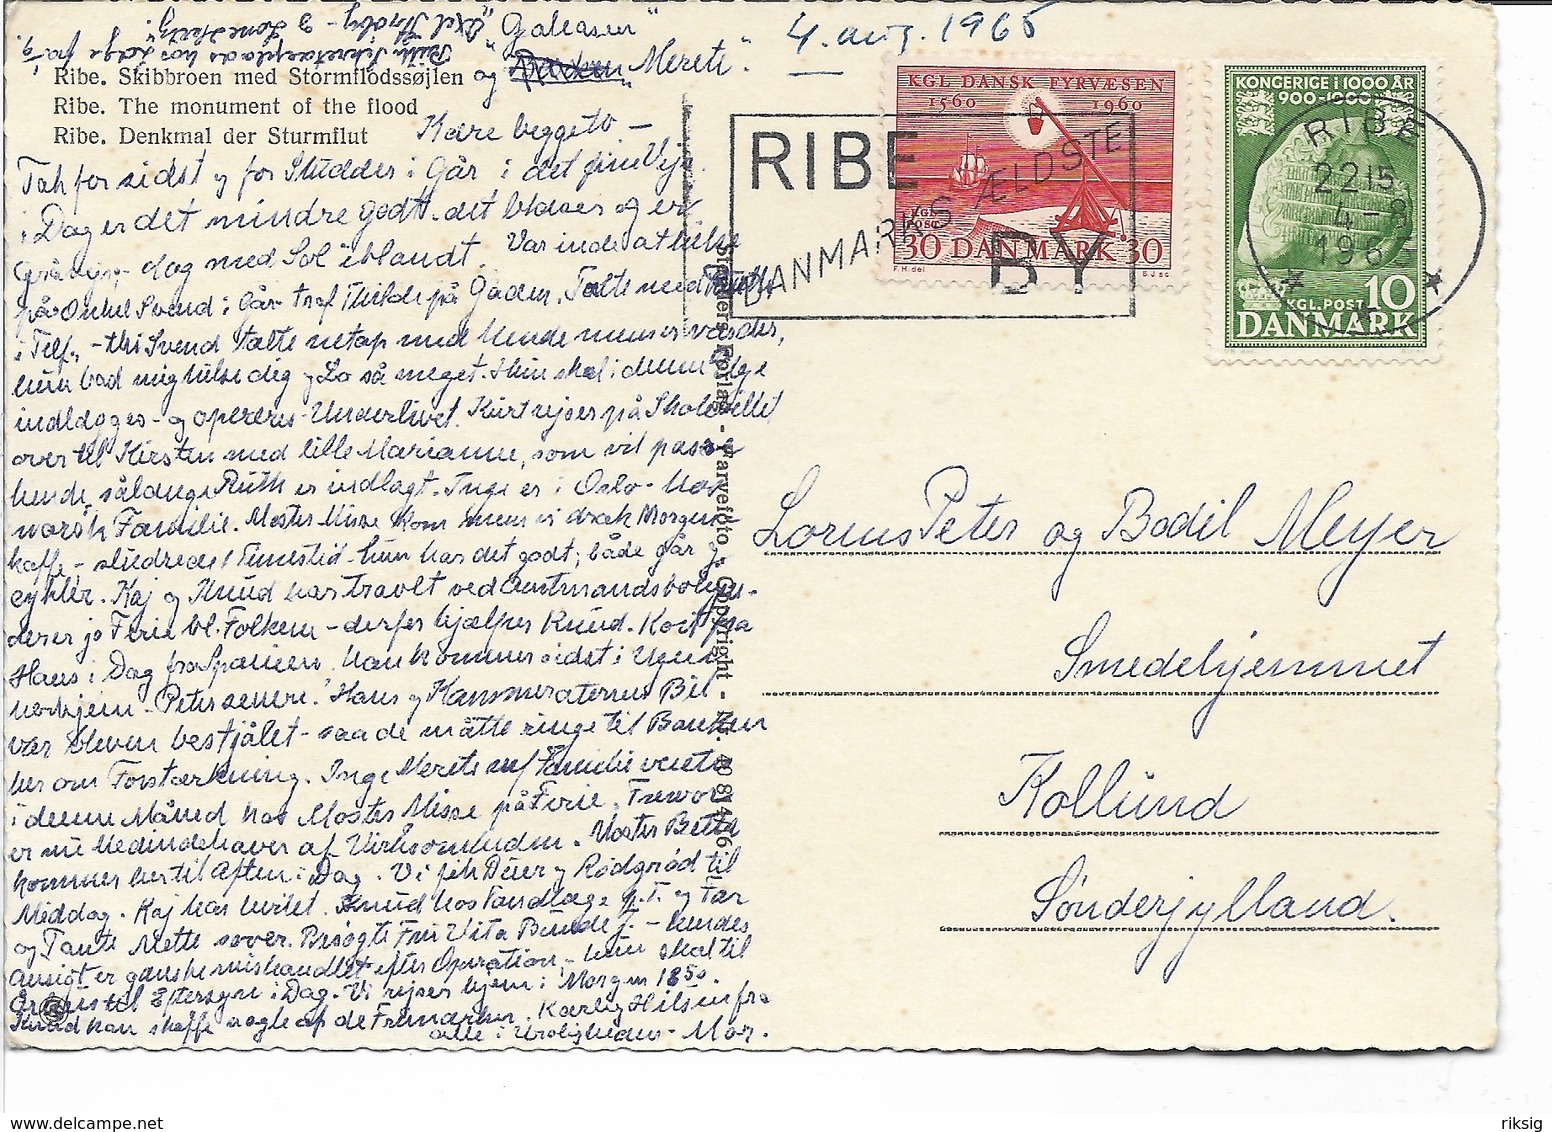 "Galeasen"
og "Merete".
4. aug. 1965
Ribe. Skibbroen med Stormflodssøjlen
Ribe. The monument of the flood
Ribe. Denkmal der Sturmflut
Kære beggeto –
Tak for sidst og for Studder i Går i det fine Vejr.
i Dag er det mindre godt – det blæser og er
dog med Sol iblandt. Var inde at hilse
på Onkel Svend i Går – traf Thilde på Gaden. Talte med Ruth
i Telf. – thi Svend talte netop med hende mens vi var der,
hun bad mig hilse dig og Lo så meget. Hun skal i denne Uge
indlægges – og opereres – Underlivet. Kurt rejser på Skolebillet
over til Kirsten med lille Marianne, som vil passe
hende, sålænge Ruth er indlagt. Inge er i Oslo – hos
norsk Familie. Moster Misse kom mens vi drak Morgen-
kaffe – sludrede 1 Timestid – hun har det godt; både går og
cykler. Kaj og Knud har travlt ved Amtmandsboligen –
der er jo Ferie bl. Folkene – derfor hjælper Knud. Kort fra
Hans i Dag fra Spanien. Han kommer sidst i Ugen
herhjem – Peter senere. Hans og Kammeraternes Bil
var bleven bestjålet – saa de måtte ringe til Banken
her om Forstærkning. Inge Merete m/ Familie ventes
i denne Måned hos Moster Misse på Ferie. Trevor
er nu Medindehaver af Virksomheden. Moster Betta
kommer her til Aften i Dag. Vi fik Duer og Rødgrød til
Middag. Kaj har hvilet. Knud hos Tandlæge p.T. og Far
og Tante Mette sover. Besøgte Fru Vita Bunde j. – hendes
Ansigt er ganske mishandlet efter Operation – hun skal til
Århus til Eftersyn i Dag. Vi rejser hjem i Morgen 18 50.
Knud kan skaffe nogle af de Frimærker. Kærlig Hilsen fra
alle i Uroligheden – Mor.
Stenders Forlag - Farvefoto - Copyright
KGL DANSK FYRVÆSEN
1560 1960
KGL POST
30 DANMARK 30
F.H. del. B.J. sc
KONGERIGE I 1000 ÅR
900-1000
KGL. POST 10
DANMARK
RIBE
DANMARKS ÆLDSTE
BY
RIBE
22 15
4 – 8
1965
Lorens Peter og Bodil Meyer
Smedehjemmet
Kollund
Sønderjylland.
www.delcampe.net
riksig